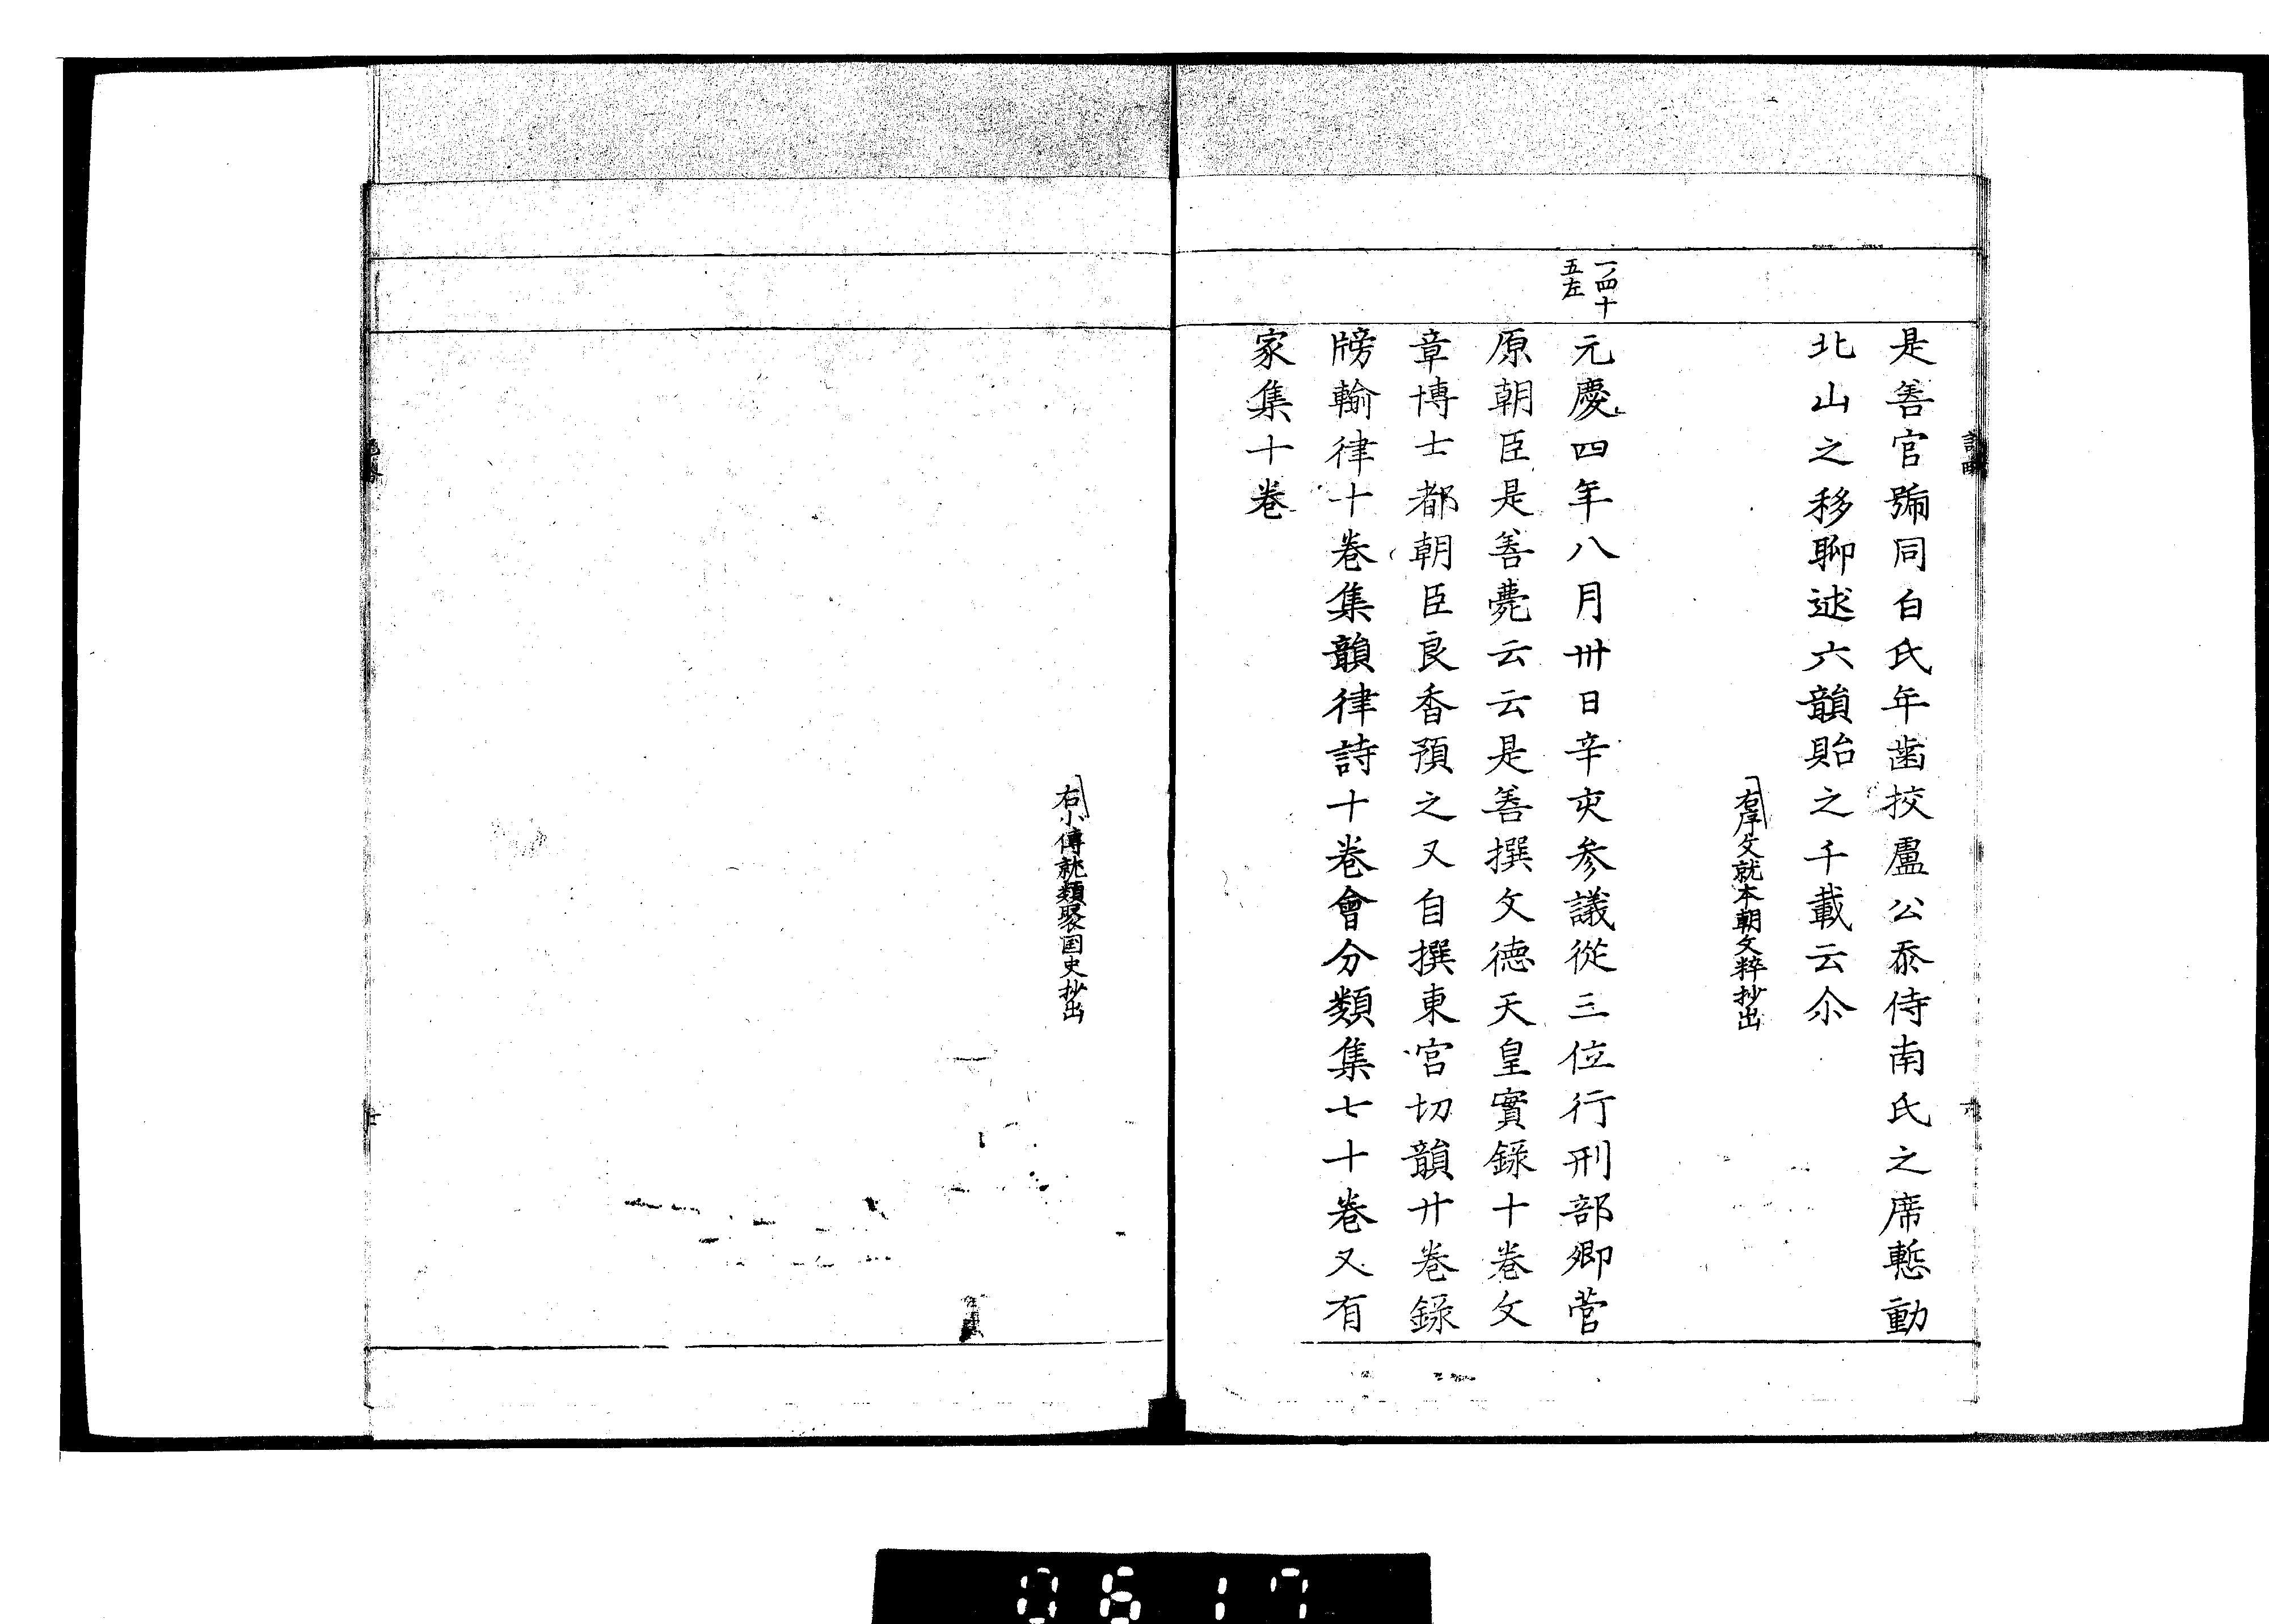 是善官號同白氏年齒挍盧公忝侍南氏之席慙動
北山之移聊述六韻貽之千載云尒
右序文就本朝文粹抄出
一ノ四十
五左
元慶四年八月卅日辛亥參議從三位行刑部卿菅
原朝臣是善薨云云是善撰文德天皇實錄十卷文
章博士都朝臣良香預之又自撰東宮切韻廿卷錄
牓輸律十卷集韻律詩十卷會分類集七十卷又有
家集十卷
右小傳就類聚国史抄出
0617